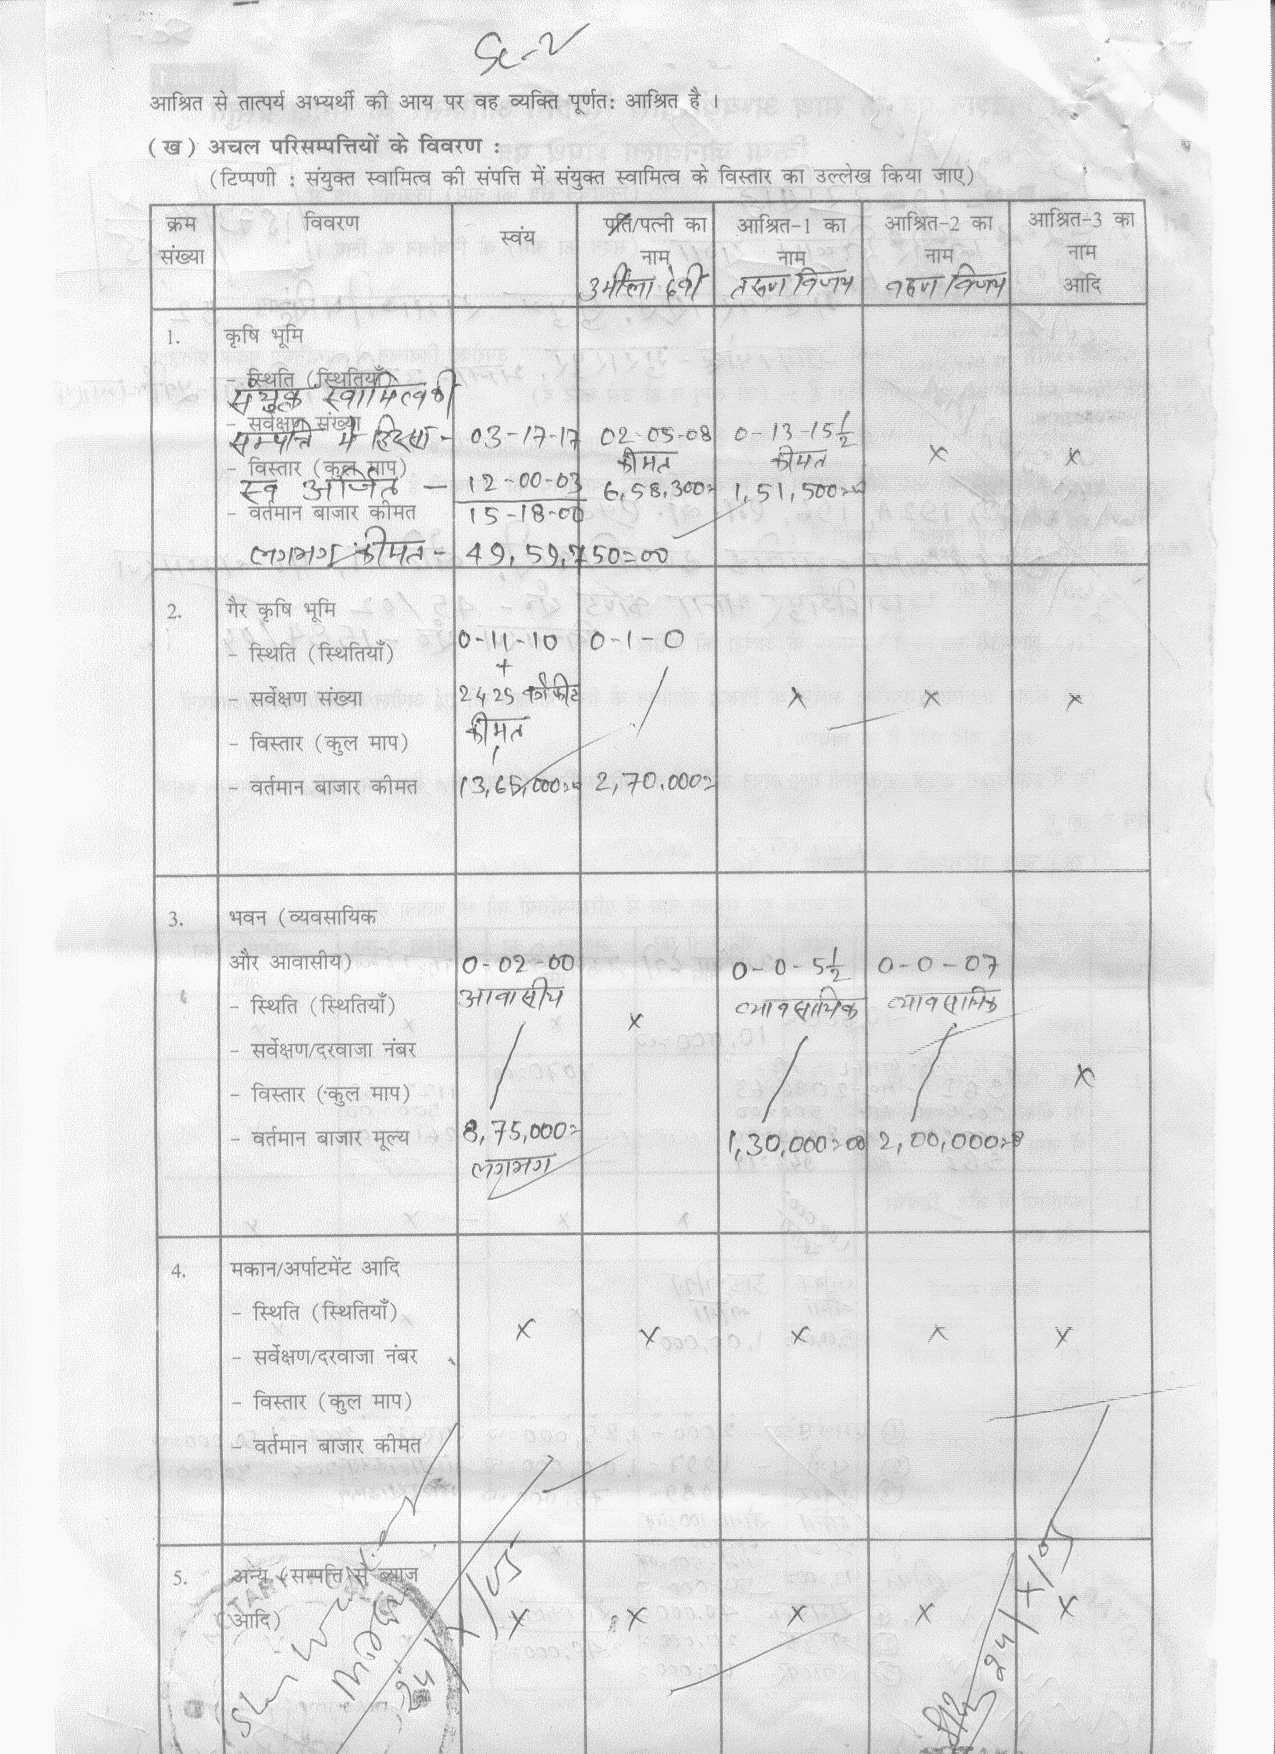 आश्रित से तात्पर्य अभ्यर्थी की आय पर वह व्यक्ति पूर्णत: आश्रित है ।
(ख) अचल परिसम्पत्तियों के विवरण :
(टिप्पणी : संयुक्त स्वामित्व की संपत्ति में संयुक्त स्वामित्व के विस्तार का उल्लेख किया जाए)
क्रम संख्या
विवरण
स्वंय
पति/पत्नी का नाम
उर्मीला देवी
आश्रित-1 का नाम
तरूण विजय
आश्रित-2 का नाम
वरूण विजय
आश्रित-3 का नाम आदि
1.
कृषि भूमि
- स्थिति (स्थितियाँ)
संयुक्त स्वामित्व की
- सर्वेक्षण संख्या
सम्पत्ति में हिस्सा - 03-17-17
02-05-08
0-13-15½
कीमत
कीमत
x
x
- विस्तार (कुल माप)
स्व अर्जित - 12-00-03
6,58,300=
1,51,500=
- वर्तमान बाजार कीमत
15-18-00
लगभग कीमत - 49,59,750=00
2.
गैर कृषि भूमि
0-11-10
0-1-0
- स्थिति (स्थितियाँ)
+
- सर्वेक्षण संख्या
2425
x
x
x
कीमत
- विस्तार (कुल माप)
- वर्तमान बाजार कीमत
13,65,000=
2,70,000=
3.
भवन (व्यवसायिक
और आवासीय)
0-02-00
0-0-5½
0-0-07
- स्थिति (स्थितियाँ)
आवासीय
व्यावसायिक
व्यावसायिक
x
- सर्वेक्षण/दरवाजा नंबर
- विस्तार (कुल माप)
x
- वर्तमान बाजार मूल्य
8,75,000=
1,30,000=00
2,00,000=
लगभग
4.
मकान/अर्पाटमेंट आदि
- स्थिति (स्थितियाँ)
x
x
x
x
x
- सर्वेक्षण/दरवाजा नंबर
- विस्तार (कुल माप)
- वर्तमान बाजार कीमत
5.
अन्य (सम्पत्ति से ब्याज
आदि)
x
x
x
x
x
24/X/05
24/X/05